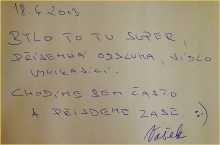 18.6.2013
BYLO TO TU SUPER,
PŘÍJEMNÁ OBSLUHA, JÍDLO
VYNIKAJÍCÍ.
CHODÍME SEM ČASTO
A PŘIJDEME ZASE :-)
Vašek